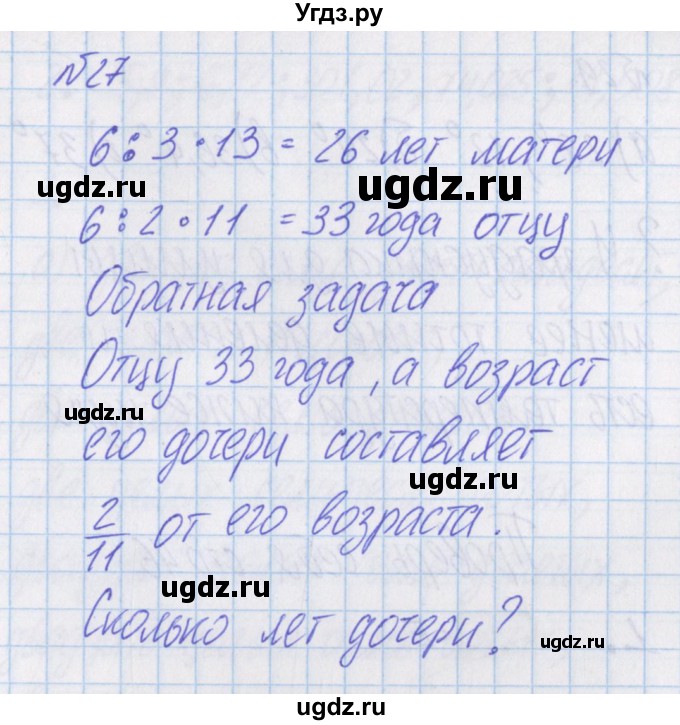 Угдз.ру
№27
6 : 3 · 13 = 26 лет матери
ugdz.ru ugdz.ru
6 : 2 · 11 = 33 года отцу
Обратная задача
Отцу 33 года, а возраст
ugdz.ru
его дочери составляет
ugdz.ru
2/11 от его возраста.
ugdz.ru
Сколько лет дочери?
ugdz.ru
ugdz.ru